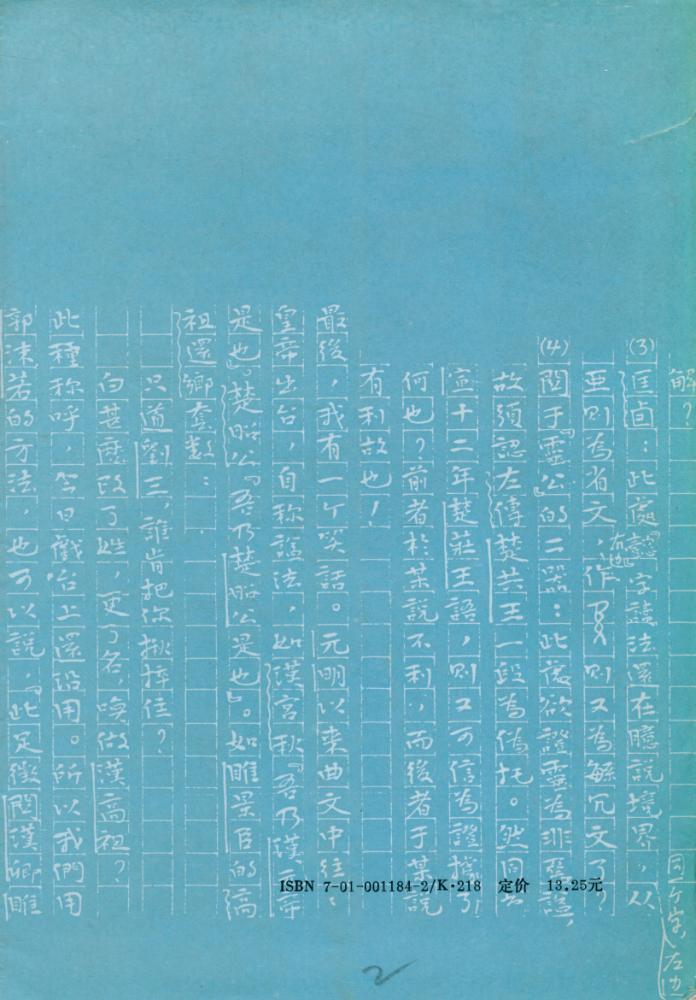 解？
同一个字，左边
(3) 匡卣：此處懿字諡法還在臆説境界，从
亜则為省文，作 则又為繁冗文了，
(4) 関于『霊公』的二器：此處欲證霊為非惡諡，
故須認左傳楚共王一段為偽托。然同為
宣十二年楚莊王語，则又可信為證據了
何也？前者於某説不利，而後者于某説
有利故也！
最後，我有一个笑話。元明以来曲文中往往
皇帝出台，自称諡法，如漢宮秋『吾乃漢 帝
是也』。楚昭公『吾乃楚昭公是也』。如睢景臣的高
祖還鄉套數：
只道劉三，誰肯把你揪捽住？
白甚麽改了姓，更了名，喚做漢高祖？
此種称呼，今日戲台上還沿用。所以我們用
郭沫若的方法，也可以説，『此足徵関漢卿睢
ISBN 7-01-001184-2/K·218 定价 13.25元
2